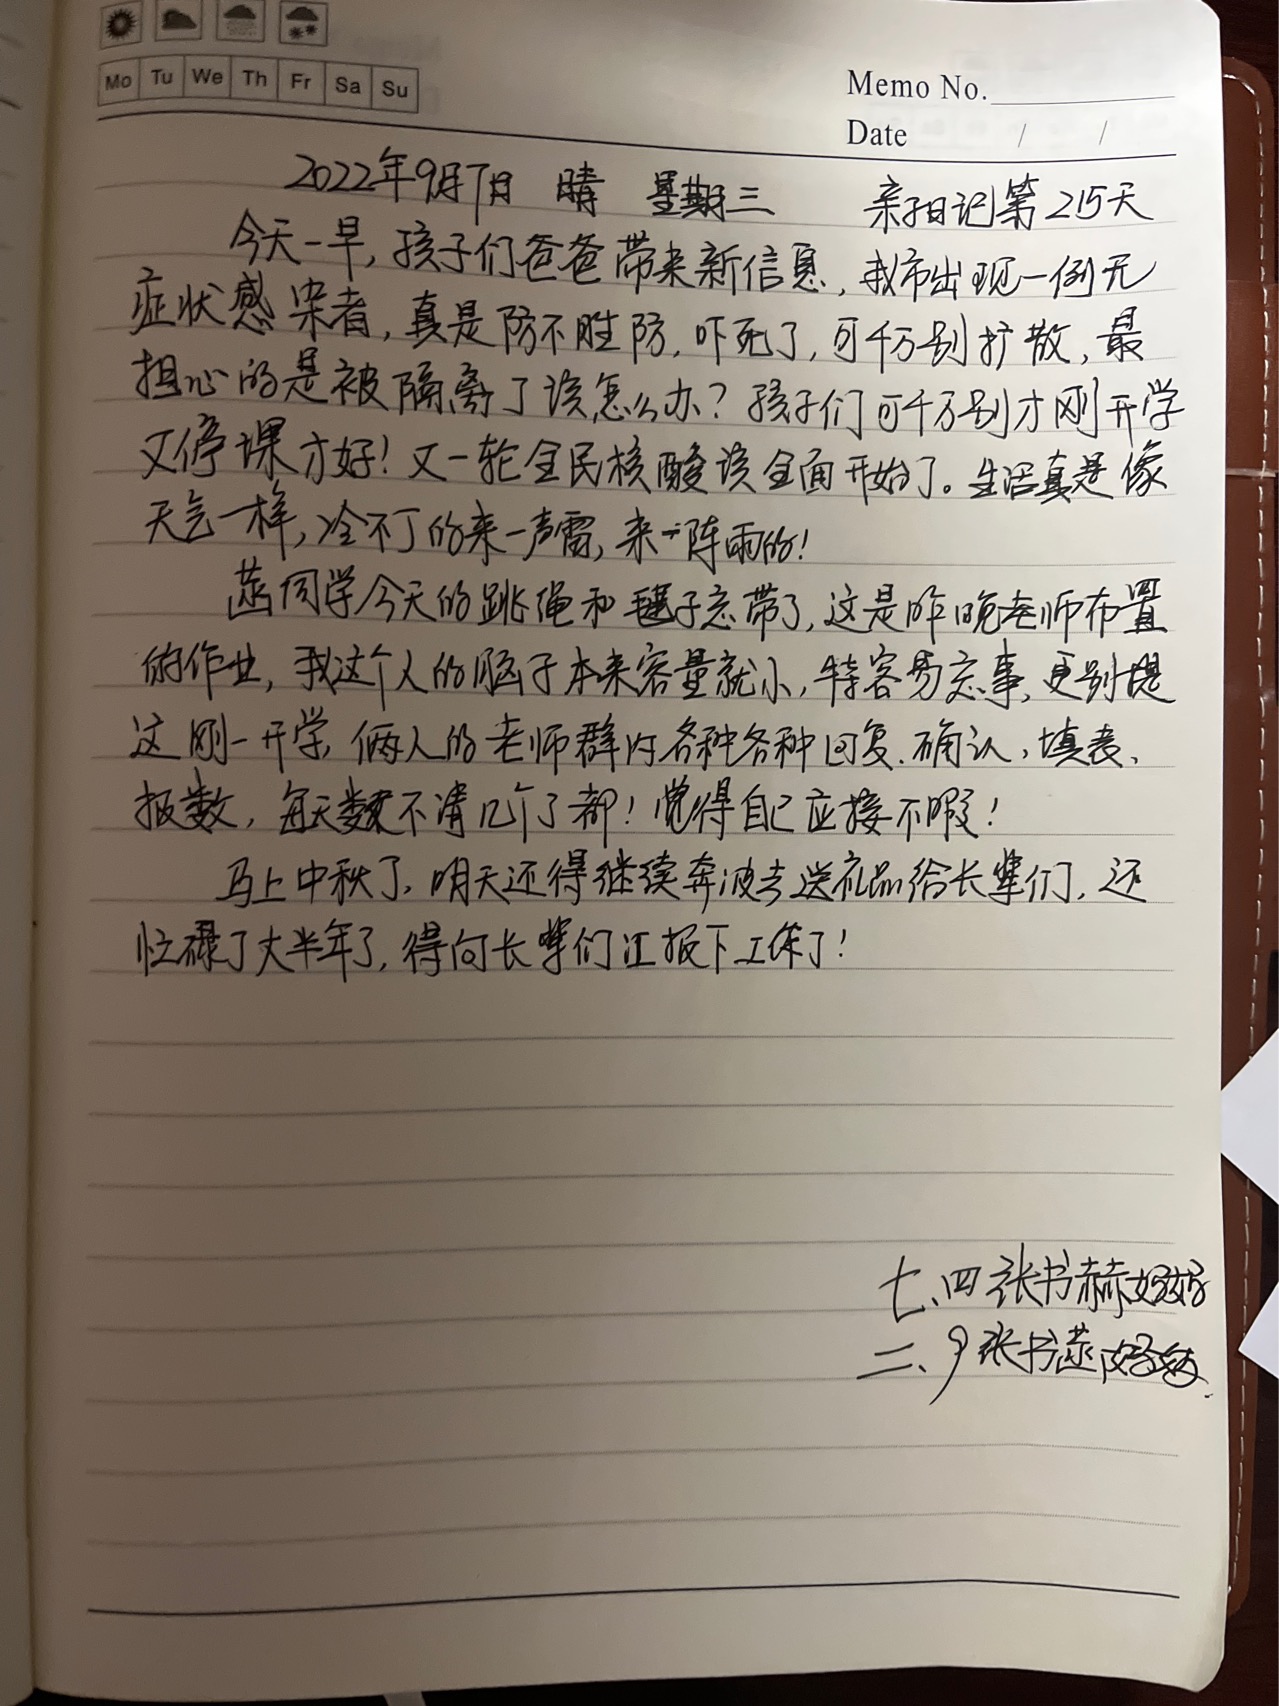 Mo Tu We Th Fr Sa Su
Memo No.
Date / /
2022年9月7日 晴 星期三 亲子日记第215天
今天一早,孩子们爸爸带来新信息,我市出现一例无
症状感染者,真是防不胜防,吓死了,可千万别扩散,最
担心的是被隔离了该怎么办?孩子们可千万别才刚开学
又停课才好!又一轮全民核酸该全面开始了。生活真是像
天气一样,冷不丁的来一声雷,来一阵雨的!
燕同学今天的跳绳和毽子忘带了,这是昨晚老师布置
的作业,我这个人的脑子本来容量就小,特容易忘事,更别提
这刚一开学,俩人的老师群内各种各种回复.确认,填表、
报数,每天数不清几个了都!觉得自己应接不暇!
马上中秋了,明天还得继续奔波去送礼品给长辈们,还
忙碌了大半年了,得向长辈们汇报下工作了!
七、四 张书赫妈妈
二、9 张书燕妈妈